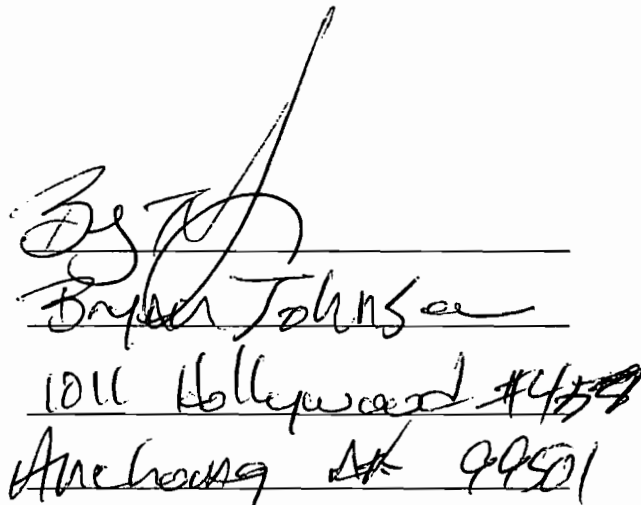 Bryan Johnson
1011 Hollywood
Anchorag AK 99501